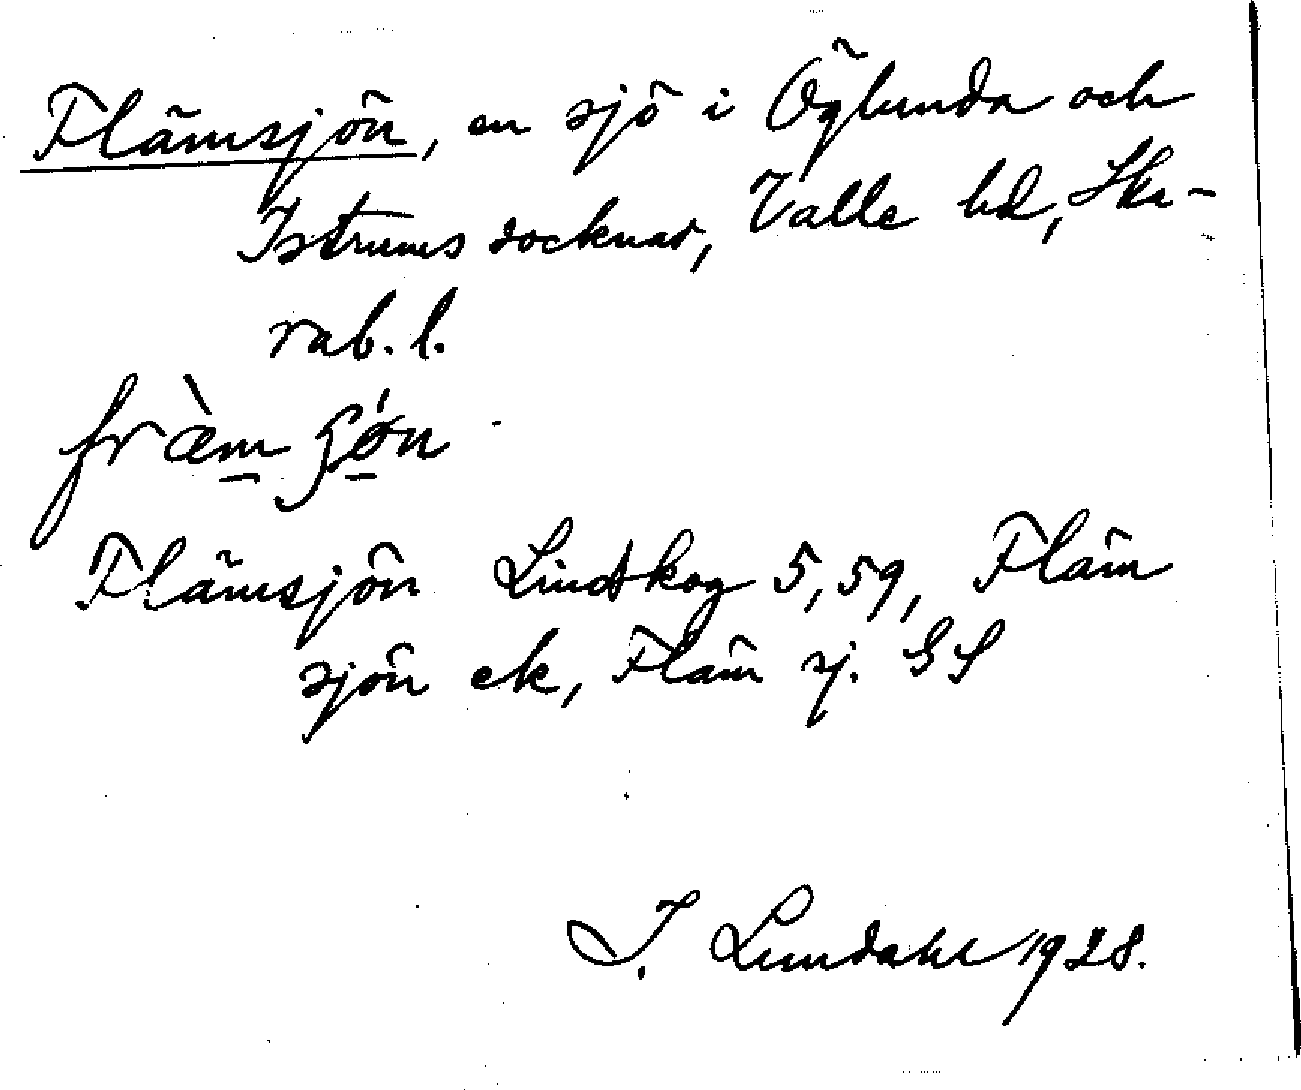 Flämsjön, en sjö i Öglunda och
Istrums socknar, Valle hd, Ska-
rab. l.
Flämsjön Lindskog 5,59, Fläm
sjön ek, Fläm sj. GS
I. Lundahl 1928.